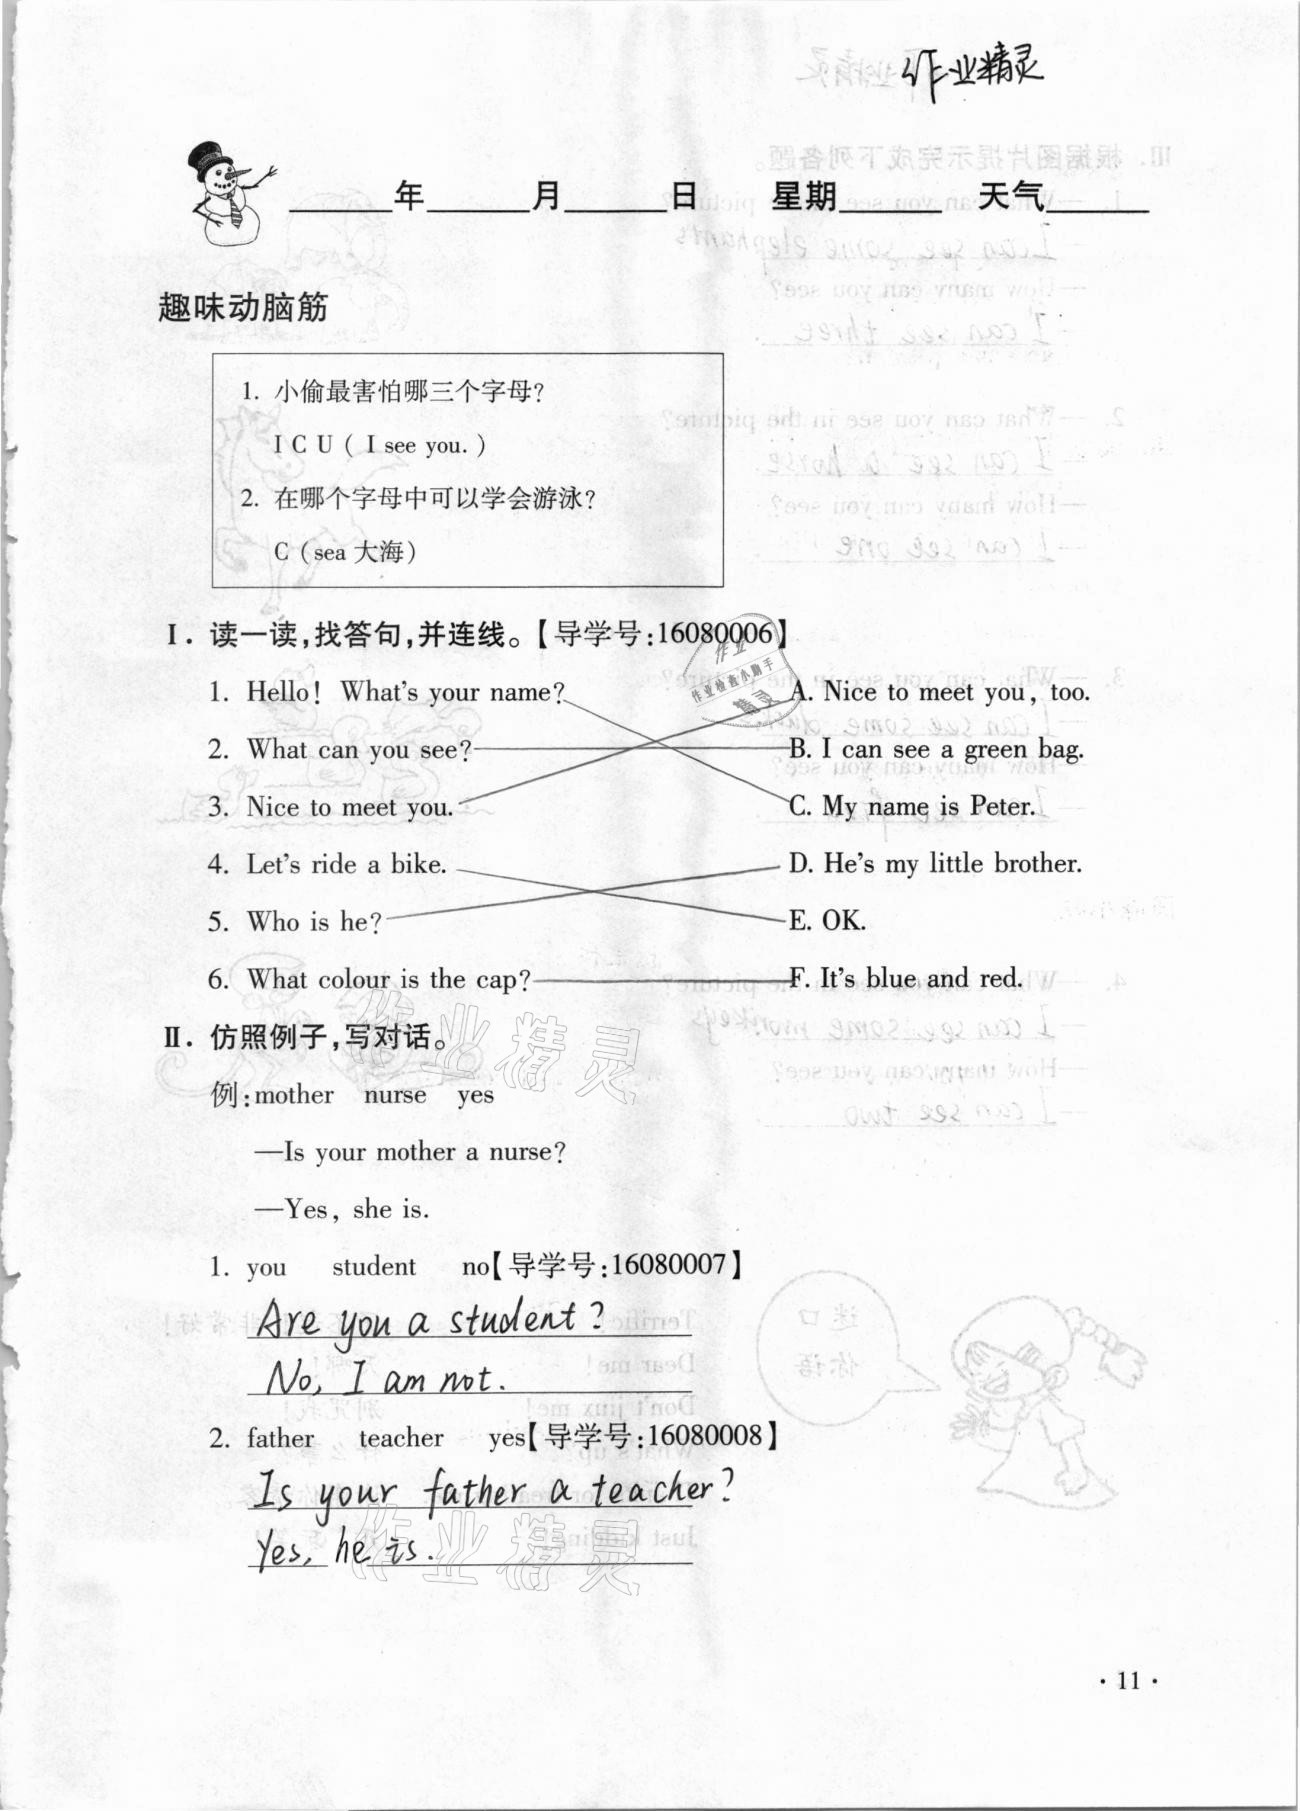 作业精灵
____年____月____日 星期____ 天气____
趣味动脑筋
1. 小偷最害怕哪三个字母?
I C U ( I see you. )
2. 在哪个字母中可以学会游泳?
C (sea 大海)
Ⅰ. 读一读,找答句,并连线。【导学号:16080006】
1. Hello! What's your name? A. Nice to meet you, too.
2. What can you see? B. I can see a green bag.
3. Nice to meet you. C. My name is Peter.
4. Let's ride a bike. D. He's my little brother.
5. Who is he? E. OK.
6. What colour is the cap? F. It's blue and red.
作业
作业检查小助手
精灵
Ⅱ. 仿照例子,写对话。
作业精灵
例:mother nurse yes
—Is your mother a nurse?
—Yes, she is.
1. you student no【导学号:16080007】
Are you a student?
No, I am not.
2. father teacher yes【导学号:16080008】
Is your father a teacher?
Yes, he is.
作业精灵
· 11 ·